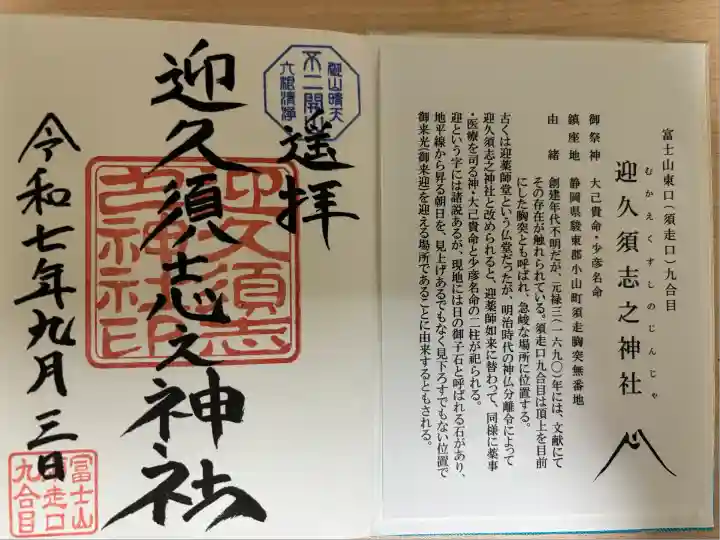 富士山東口(須走口)九合目
むかえくすしのじんじゃ
迎久須志之神社
御祭神 大己貴命・少彦名命
鎮座地 静岡県駿東郡小山町須走胸突無番地
由緒 創建年代不明だが、元禄三(一六九〇)年には、文献にて
その存在が触れられている。須走口九合目は頂上を目前
にした胸突とも呼ばれ、急峻な場所に位置する。
古くは迎薬師堂という仏堂だったが、明治時代の神仏分離令によって
迎久須志之神社と改められると、迎薬師如来に替わって、同様に薬事
・医療を司る神・大己貴命と少彦名命の二柱が祀られる。
迎という字には諸説あるが、現地には日の御子石と呼ばれる石があり、
地平線から昇る朝日を、見上げあるでもなく見下ろすでもない位置で
御来光(御来迎)を迎える場所であることに由来するともされる。
登山晴天
不二開山
六根清浄
遙拝
迎久須志之神社
迎久須志
之神社印
令和七年九月三日
富士山
須走口
九合目